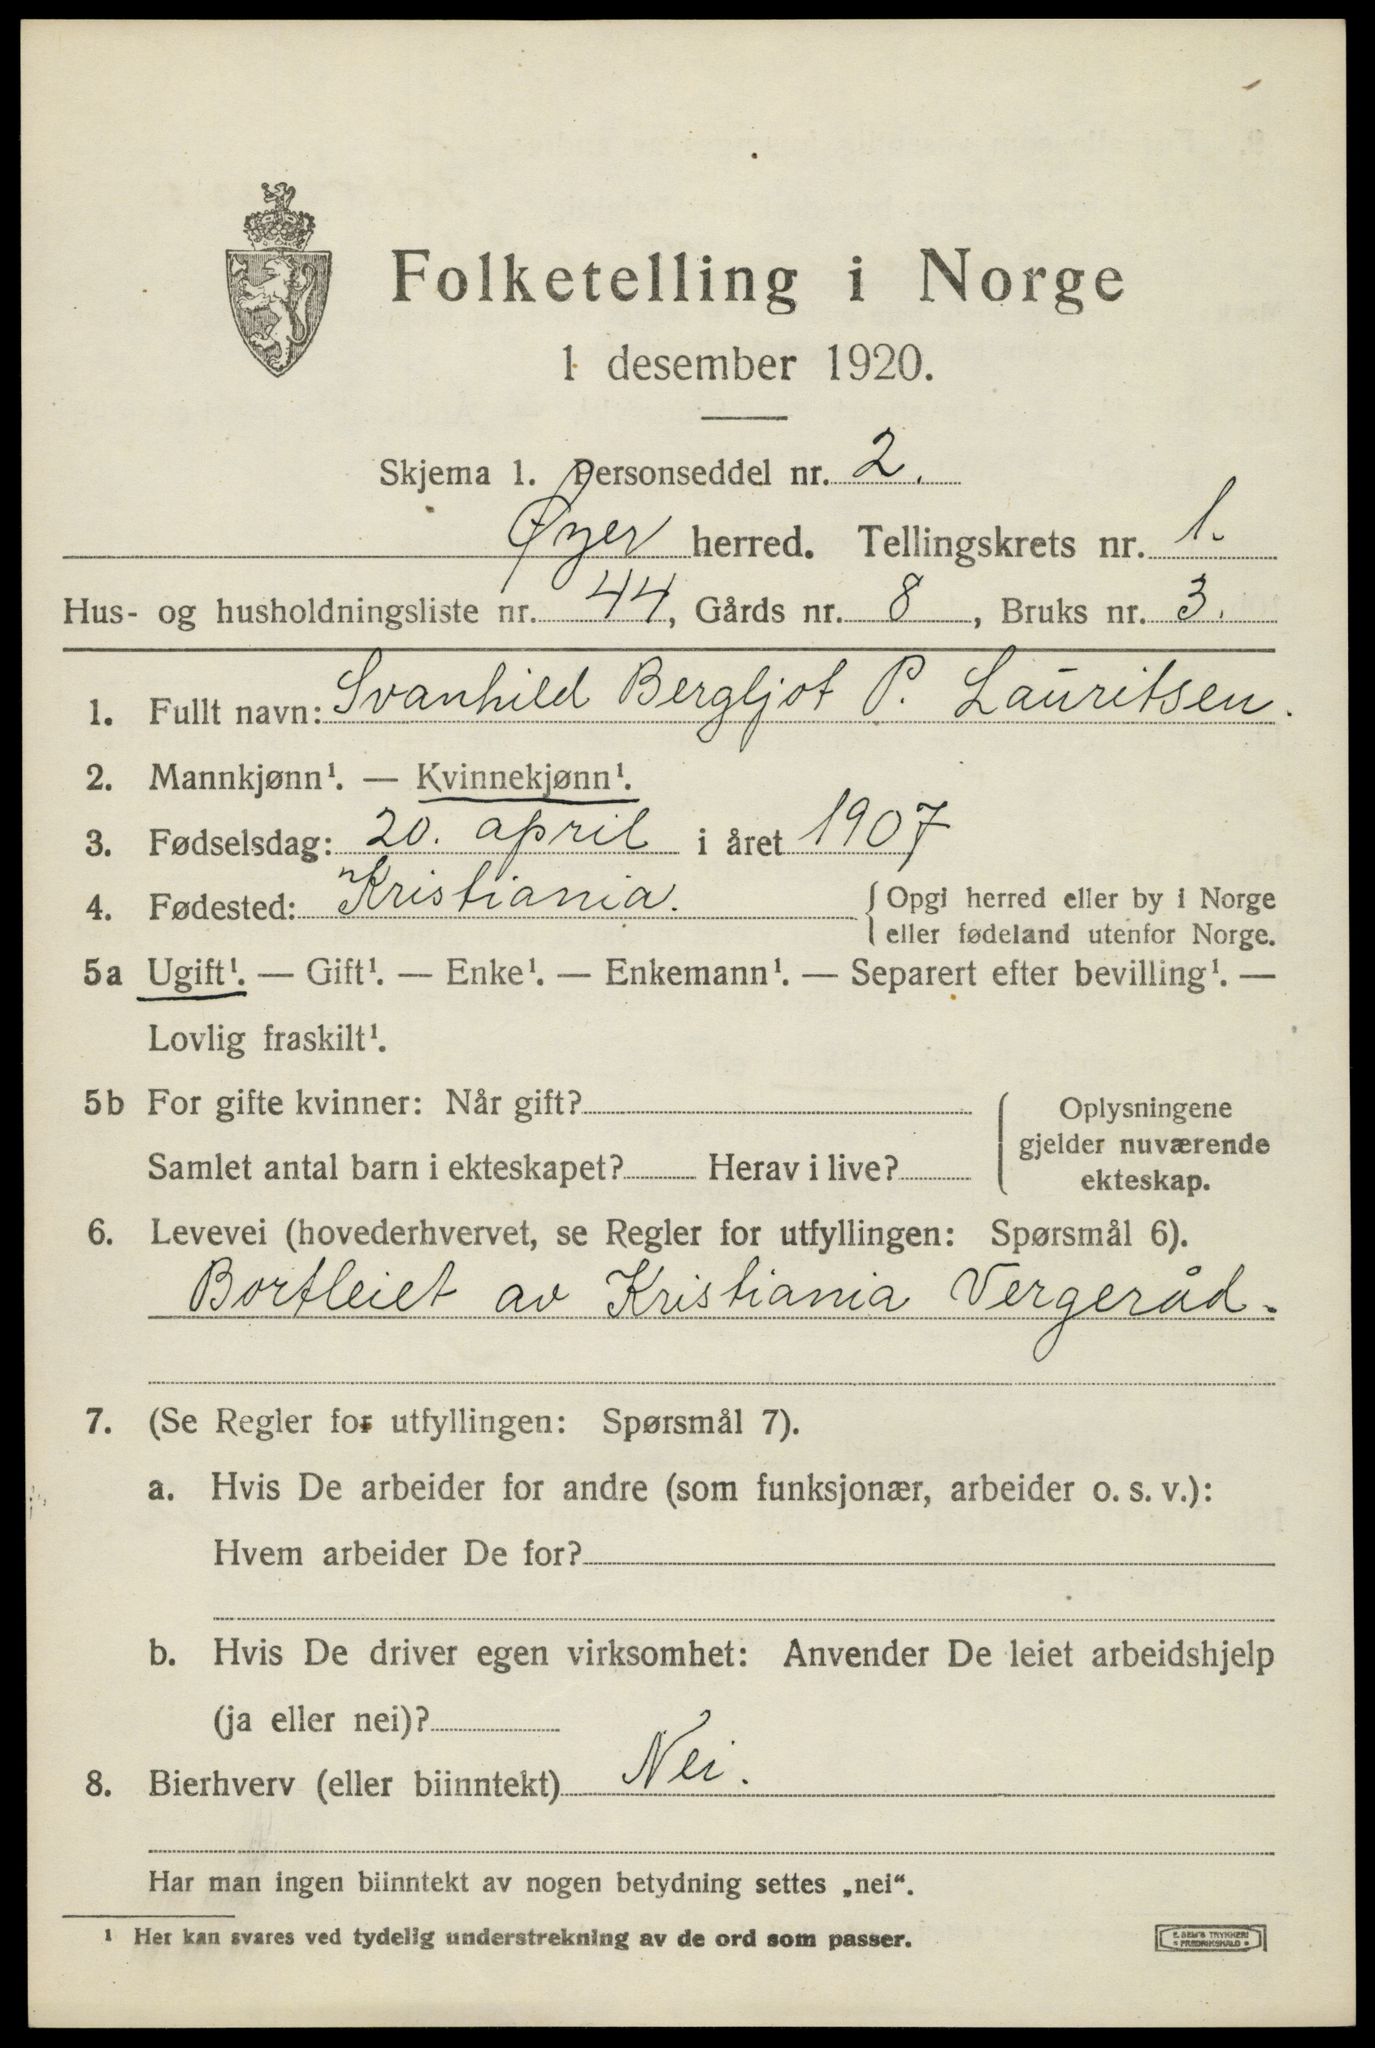 Folketelling i Norge
1 desember 1920.
Skjema 1. Personseddel nr. 2.
Øyer herred. Tellingskrets nr. 1.
Hus- og husholdningsliste nr. 44, Gårds nr. 8, Bruks nr. 3.
1. Fullt navn: Svanhild Bergljot P. Lauritsen.
2. Mannkjønn¹. — Kvinnekjønn¹.
3. Fødselsdag: 20. april i året 1907
4. Fødested: Kristiania. {Opgi herred eller by i Norge
eller fødeland utenfor Norge.
5a Ugift¹. — Gift¹. — Enke¹. — Enkemann¹. — Separert efter bevilling¹. —
Lovlig fraskilt¹.
5b For gifte kvinner: Når gift? Oplysningene
gjelder nuværende
Samlet antal barn i ekteskapet? Herav i live? ekteskap.
6. Levevei (hovederhvervet, se Regler for utfyllingen: Spørsmål 6).
Bortleiet av Kristiania Vergeråd.
7. (Se Regler for utfyllingen: Spørsmål 7).
a. Hvis De arbeider for andre (som funksjonær, arbeider o. s. v.):
Hvem arbeider De for?
b. Hvis De driver egen virksomhet: Anvender De leiet arbeidshjelp
(ja eller nei)?
8. Bierhverv (eller biinntekt) Nei.
Har man ingen biinntekt av nogen betydning settes „nei“.
¹ Her kan svares ved tydelig understrekning av de ord som passer.
E. SEM'S TRYKKERI
• FREDRIKSHALD •